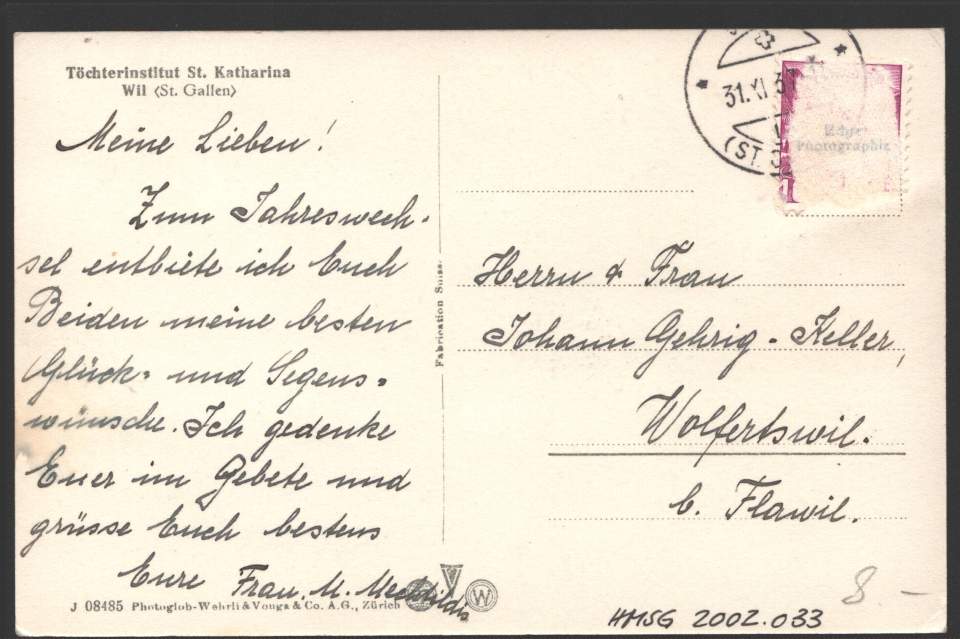 Töchterinstitut St. Katharina
Wil (St. Gallen)
Meine Lieben!
Zum Jahreswech-
sel entbiete ich Euch
Beiden meine besten
Glück- und Segens-
wünsche. Ich gedenke
Euer im Gebete und
grüsse Euch bestens
Eure Frau M. Mechtildis
J 08485 Photoglob-Wehrli & Vouga & Co. A.G., Zürich
W
Fabrication Suisse
31.XI.3
(ST.
Echte
Photographie
Herrn & Frau
Johann Gehrig-Keller,
Wolfertswil.
b. Flawil.
8 –
HMSG 2002.033